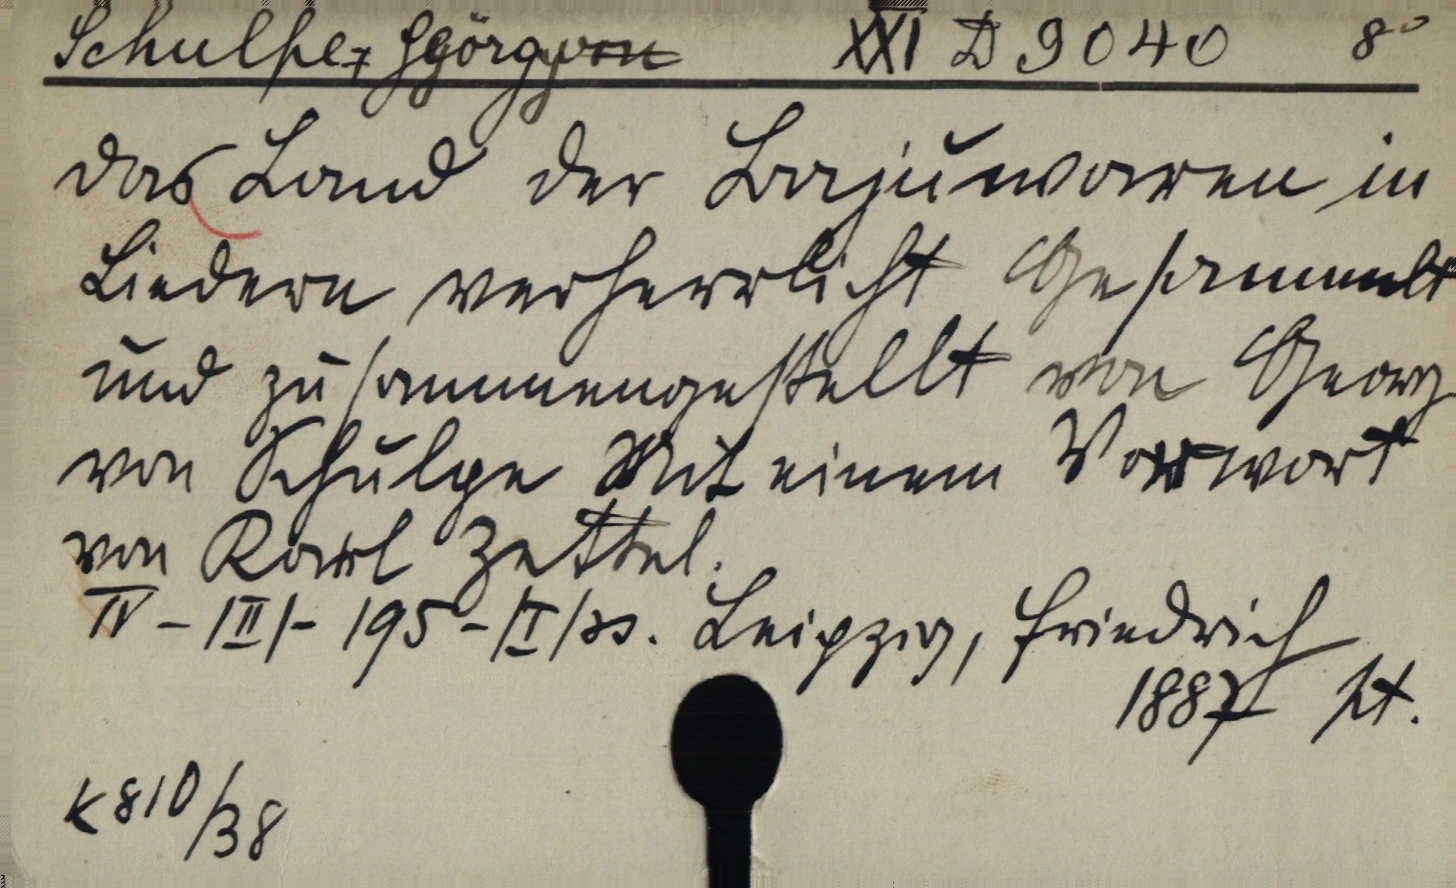 Schulpe, György von XXI D 9040 8°
Das Land der Bajuwaren in
Liedern verherrlicht Gesammelt
und zusammengestellt von Georg
von Schulpe Mit einem Vorwort
von Karl Zettel.
IV - |II| - 195 - |I| ss. Leipzig, Friedrich
1887 K810/38